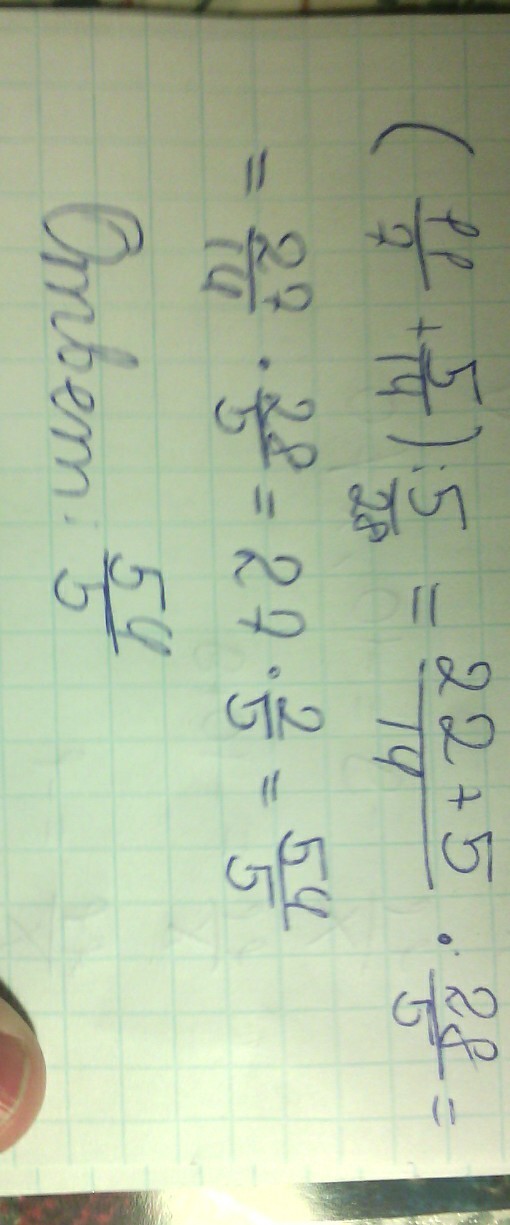 ( 11/7 + 5/14 ) : 5/28 = 22+5/14 · 28/5 =
= 27/14 · 28/5 = 27 · 2/5 = 54/5
Ответ: 54/5